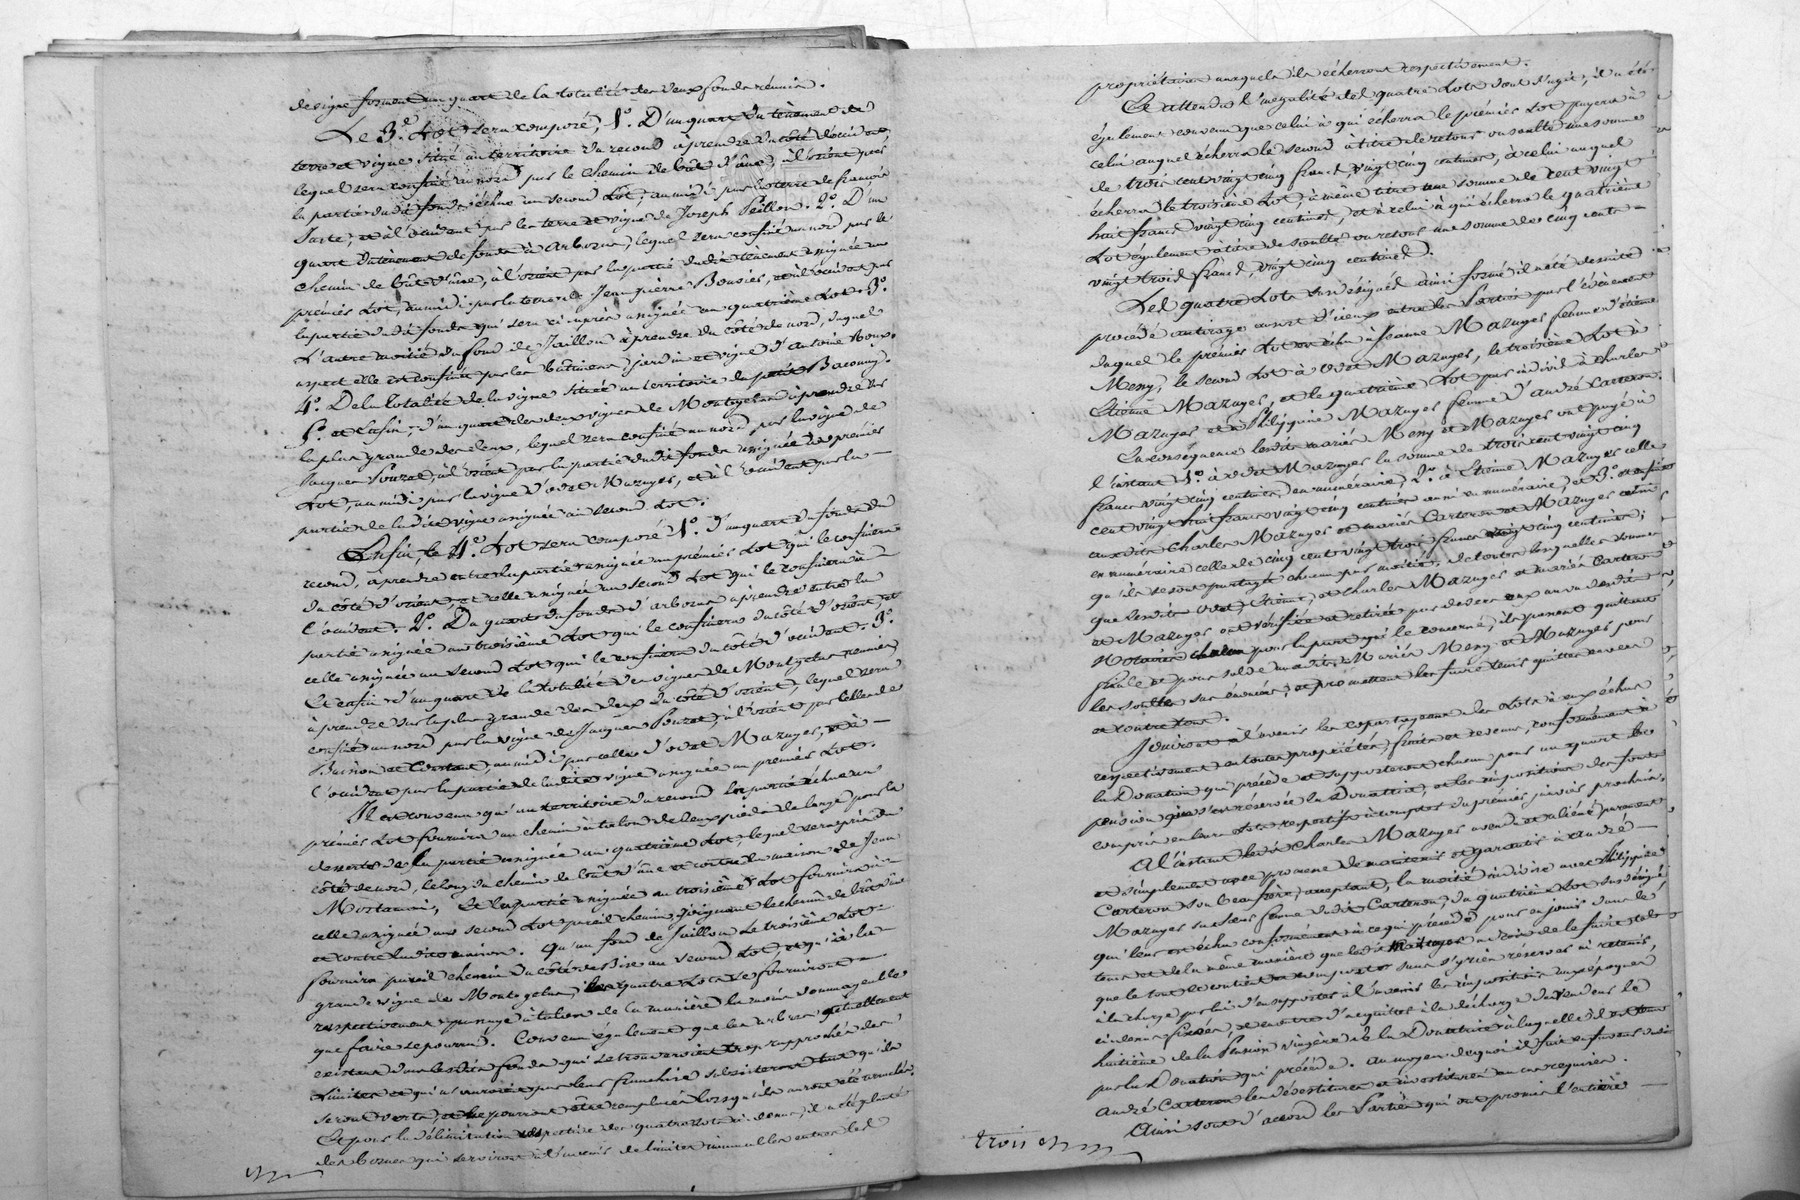 de vigne formant un quart de la totalité des deux fonds réunis.
Le 3.e Lot sera composé, 1.o D'un quart du tènement de
terre et vigne situé au territoire du recoud à prendre du côté d'occident,
lequel sera confiné au nord par le chemin de bât d'âne, à l'orient par
la partie dudit fonds échue au second Lot, au midi par la terre de françois
et à l'occident par les terre et vigne de Joseph Peillon. 2.o D'un
quart du tènement de fonds d'arbozin, lequel sera confiné au nord par le
chemin de bât d'âne, à l'orient par la partie dudit tènement assignée au
premier Lot, au midi par la terre de Jean pierre et à l'occident par
la partie dudit fonds qui sera ci-après assignée au quatrième Lot. 3.o
L'autre moitié du fond de Jaillon à prendre du côté de nord, duquel
aspect elle est confinée par les bâtimens, jardin et vigne d'antoine Roux.
4.o De la totalité de la vigne située au territoire du petit
5.o et Enfin, d'un quart des deux vignes de Montgelas à prendre sur
la plus grande des deux, lequel sera confiné au nord par la vigne de
Jacques Pouzet, à l'orient par la partie dudit fonds assignée au premier
Lot, au midi par la vigne d'odet Mazuyer, et à l'occident par la
partie de ladite vigne assignée au second Lot.
Enfin, le 4.e Lot sera composé 1.o d'un quart du fonds du
recoud, à prendre entre la partie assignée au premier Lot qui le confinera
du côté d'orient, et celle assignée au second Lot qui le confinera à
l'occident. 2.o Du quart du fonds d'arbozin à prendre entre la
partie assignée au troisième Lot qui le confinera du côté d'orient, et
celle assignée au second Lot qui le confinera du côté d'occident. 3.o
Et enfin d'un quart de la totalité des vignes de Montgelas réunies
à prendre sur la plus grande des deux du côté d'orient, lequel sera
confiné au nord par la vigne de Jacques Pouzet, à l'orient par celles de
Buisson et Constant, au midi par celle d'odet Mazuyer, et à
l'occident par la partie de ladite vigne assignée au premier Lot.
Il est convenu qu'au territoire du recoud la partie échue au
premier Lot fournira un chemin à talon de deux pieds de large pour la
desserte de la partie assignée au quatrième Lot, lequel sera pris du
côté de nord, le long du chemin de bât d'âne et contre la maison de Jean
Et la partie assignée au troisième Lot fournira à
celle assignée au second Lot pareil chemin joignant le chemin de bât d'âne
et contre ladite maison. Qu'au fond de Jaillon le troisième Lot
fournira pareil chemin du côté de bise au second Lot, et qu'à la
grande vigne de Montgelas, les quatre Lots se fourniront
respectivement passage à talon de la manière la moins dommageable
que faire se pourra. Convenu également que les arbres actuellement
existant dans lesdits fonds qui se trouveroient trop rapprochés des
Limites et qui n'auroient pas leur franchise subsisteront tant qu'ils
seront verts, et ne pourront être remplacés lorsqu'ils auront été arrachés.
Et pour la délimitation respective des quatre Lots ci-dessus, il a été planté
des bornes qui serviront à l'avenir de limites immuables entre les
propriétaires auxquels ils écherront respectivement.
Et attendu l'inégalité des quatre Lots dont s'agit, il a été
également convenu que celui à qui écherra le premier Lot payera à
celui auquel écherra le second à titre de retour ou soulte une somme
de trois cent vingt cinq francs, vingt cinq centimes, à celui auquel
écherra le troisième Lot, à même titre une somme de cent vingt
huit francs vingt cinq centimes, et à celui à qui écherra le quatrième
Lot également à titre de soulte ou retour une somme de cinq cents
vingt trois francs, vingt cinq centimes.
Les quatre Lots susdésignés ainsi formés il a été de suite
procédé au tirage au sort d'iceux entre les Parties par l'évènement
duquel le premier Lot est échu à Jeanne Mazuyer femme d'étienne
Meny, le second Lot à odet Mazuyer, le troisième Lot à
Etienne Mazuyer, et le quatrième Lot par indivis à charles
Mazuyer et à Philippine Mazuyer femme d'andré Carteron.
En conséquence lesdits mariés Meny et Mazuyer ont payé à
l'instant 1.o à odet Mazuyer la somme de trois cent vingt cinq
francs vingt cinq centimes en numéraire, 2.o à Etienne Mazuyer celle
cent vingt huit francs vingt cinq centimes aussi en numéraire, et 3.o et enfin
auxdits Charles Mazuyer et mariés Carteron et Mazuyer aussi
en numéraire celle de cinq cents vingt trois francs vingt cinq centimes,
qu'ils se sont partagée chacun par moitié, de toutes lesquelles sommes
que lesdits odet, Etienne, et Charles Mazuyer et mariés Carteron
et Mazuyer ont vérifiée et retirée par devers eux au vu desdits
Notaires chacun pour la part qui le concerne, ils passent quittance
finale et pour solde auxdits Mariés Meny et Mazuyer pour
les soultes sus énoncées, et promettent les faire tenir quittes envers
et contre tous.
Jouiront à l'avenir les copartageans des Lots à eux échus
respectivement en toutes propriétés, fruits et revenus, conformément à
la Donation qui précède et supporteront chacun pour un quart la
pension que s'est réservée la Donatrice, et les impositions des fonds
compris en leurs Lots respectifs à compter du premier janvier prochain.
A l'instant ledit Charles Mazuyer a vendu et aliéné purement
et simplement avec promesse de maintenir et garantir à andré
Carteron son beaufrère, acceptant, la moitié indivise avec Philippine
Mazuyer sa sœur femme dudit Carteron, du quatrième Lot susdésigné
qui leur est échu conformément à ce qui précède pour en jouir dans le
tout et de la même manière que ledit Mazuyer a droit de le faire, et
que le tout se contient et comporte sans s'y rien réserver ni retenir,
à la charge par lui d'en supporter à l'avenir les impositions aux époques
ci-dessus fixées, et en outre d'acquitter à la décharge du vendeur le
huitième de la Pension viagère de la Donatrice à laquelle il est tenu
par la Donation qui précède. Au moyen de quoi il
andré Carteron les dévestitures et investitures en cas requises.
Ainsi sont d'accord les Parties qui ont promis l'entière
trois